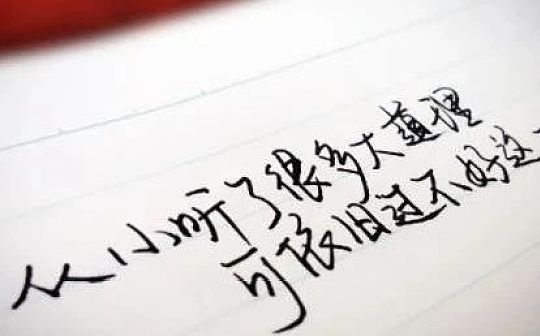 从小听了很多大道理
可依旧过不好这